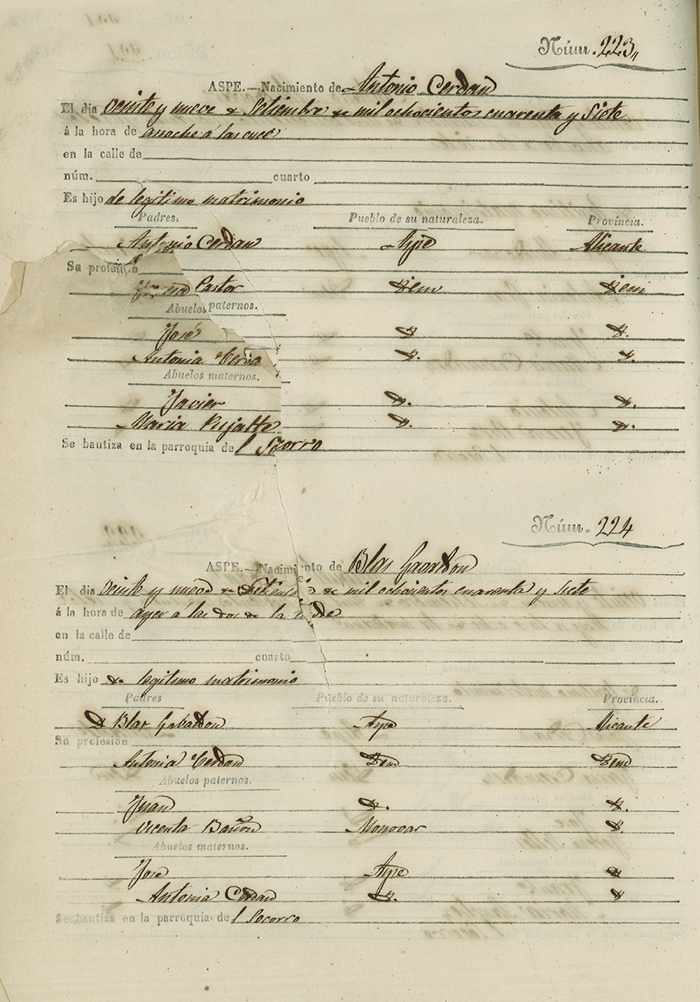 Núm. 223,,
ASPE.—Nacimiento de Antonio Cerdan
El dia veinte y nueve de Setiembre de mil ochocientos cuarenta y siete
á la hora de anoche á las
en la calle de
núm. cuarto
Es hijo de legitimo matrimonio
Padres. Pueblo de su naturaleza. Provincia.
Antonio Cerdan Aspe Alicante
Su profesion
Pastor Idem Idem
Abuelos paternos.
José Id. Id.
Antonia Id. Id.
Abuelos maternos.
Javier Id. Id.
Maria Id. Id.
Se bautiza en la parroquia de l Socorro
Núm. 224
ASPE.—Nacimiento de Blas
El dia veinte y nueve de Setiembre de mil ochocientos cuarenta y siete
á la hora de ayer á las dos de la
en la calle de
núm. cuarto
Es hijo de legitimo matrimonio
Padres Pueblo de su naturaleza. Provincia.
D. Blas Gabaldon Aspe Alicante
Su profesion
Antonia Cerdan Idem Idem
Abuelos paternos.
Juan Id. Id.
Vicenta Bañon Monovar Id.
Abuelos maternos.
José Aspe Id.
Antonia Cerdan Id. Id.
Se bautiza en la parroquia de l Socorro